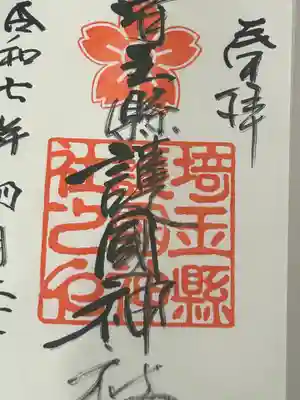 奉拝
埼玉縣護國神社
埼玉縣
護國神
社之印
令和七年四月二